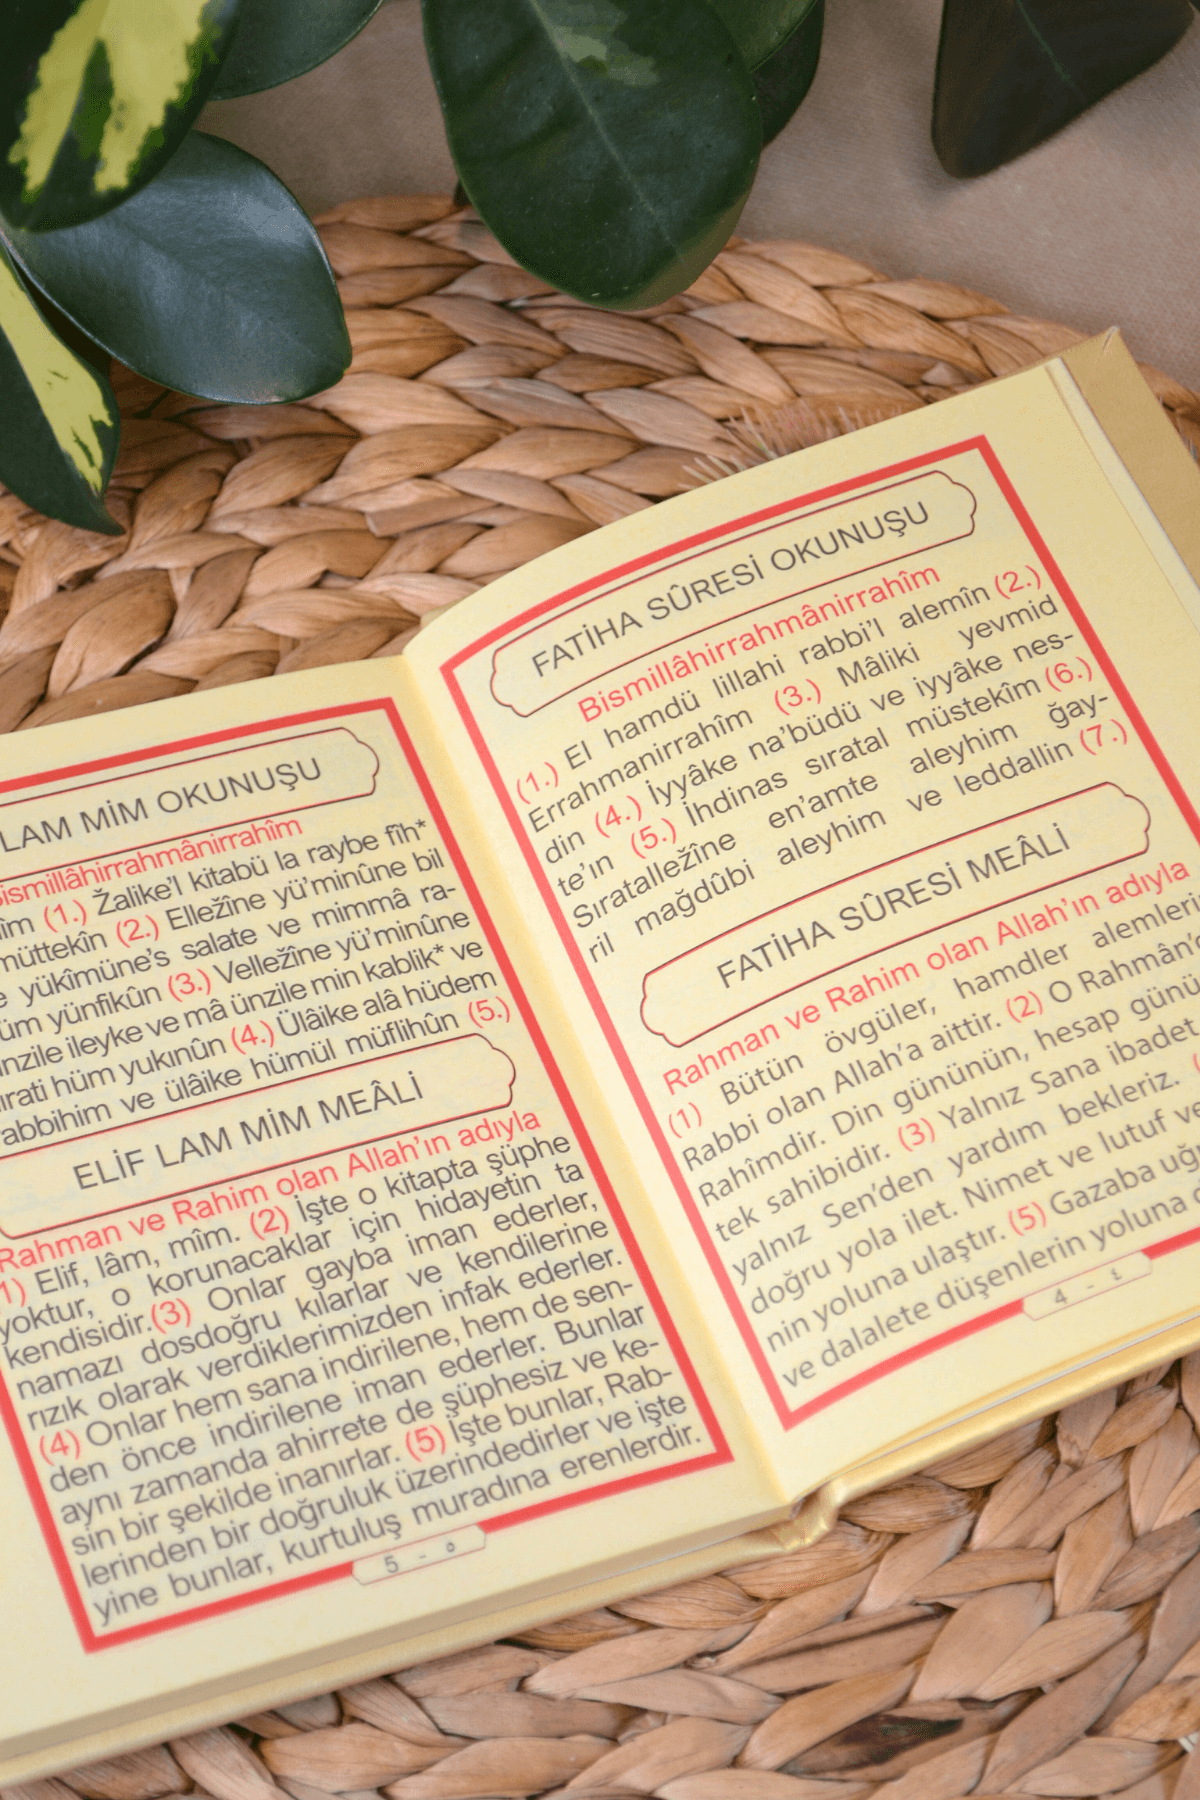 FATİHA SÛRESİ OKUNUŞU
Bismillâhirrahmânirrahîm
(1.) El hamdü lillahi rabbi'l alemîn (2.)
Errahmanirrahîm (3.) Mâliki yevmid
din (4.) İyyâke na'büdü ve iyyâke nes-
te'ın (5.) İhdinas sıratal müstekîm (6.)
Sıratalležîne en'amte aleyhim ğay-
ril mağdûbi aleyhim ve leddallin (7.)
FATİHA SÛRESİ MEÂLİ
Rahman ve Rahim olan Allah'ın adıyla
(1) Bütün övgüler, hamdler
Rabbi olan Allah'a aittir. (2) O
Rahîmdir. Din gününün, hesap
tek sahibidir. (3) Yalnız Sana ibadet
yalnız Sen'den yardım bekleriz.
doğru yola ilet. Nimet ve lutuf
nin yoluna ulaştır. (5) Gazaba
ve dalalete düşenlerin yoluna
4 - ٤
LAM MİM OKUNUŞU
(1.) Žalike'l kitabü la raybe fîh*
(2.) Elležîne yü'minûne bil
yükîmüne's salate ve mimmâ ra-
yünfikûn (3.) Vellezîne yü'minûne
ileyke ve mâ ünzile min kablik* ve
hüm yukınûn (4.) Ülâike alâ hüdem
ve ülâike hümül müflihûn (5.)
ELİF LAM MİM MEÂLİ
Rahman ve Rahim olan Allah'ın adıyla
Elif, lâm, mîm. (2) İşte o kitapta şüphe
yoktur, o korunacaklar için hidayetin ta
kendisidir.(3) Onlar gayba iman ederler,
namazı dosdoğru kılarlar ve kendilerine
rızık olarak verdiklerimizden infak ederler.
(4) Onlar hem sana indirilene, hem de sen-
den önce indirilene iman ederler. Bunlar
aynı zamanda ahirrete de şüphesiz ve ke-
sin bir şekilde inanırlar. (5) İşte bunlar, Rab-
lerinden bir doğruluk üzerindedirler ve işte
yine bunlar, kurtuluş muradına erenlerdir.
5 - ٥